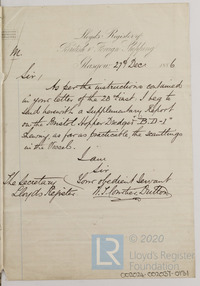 Lloyd's Register of
British & Foreign Shipping
Glasgow 27th Decr 1886
M
Sir,
As per the instructions contained
in your letter of the 23rd inst. I beg to
send herewith a Supplementary Report
on the Bristol Hopper Dredger "B.D-1"
shewing, as far as practicable, the scantlings
in the Vessel.
I am
Sir
Your obedient Servant
The Secretary
Lloyds Register
© 2020
Lloyd's Register
Foundation